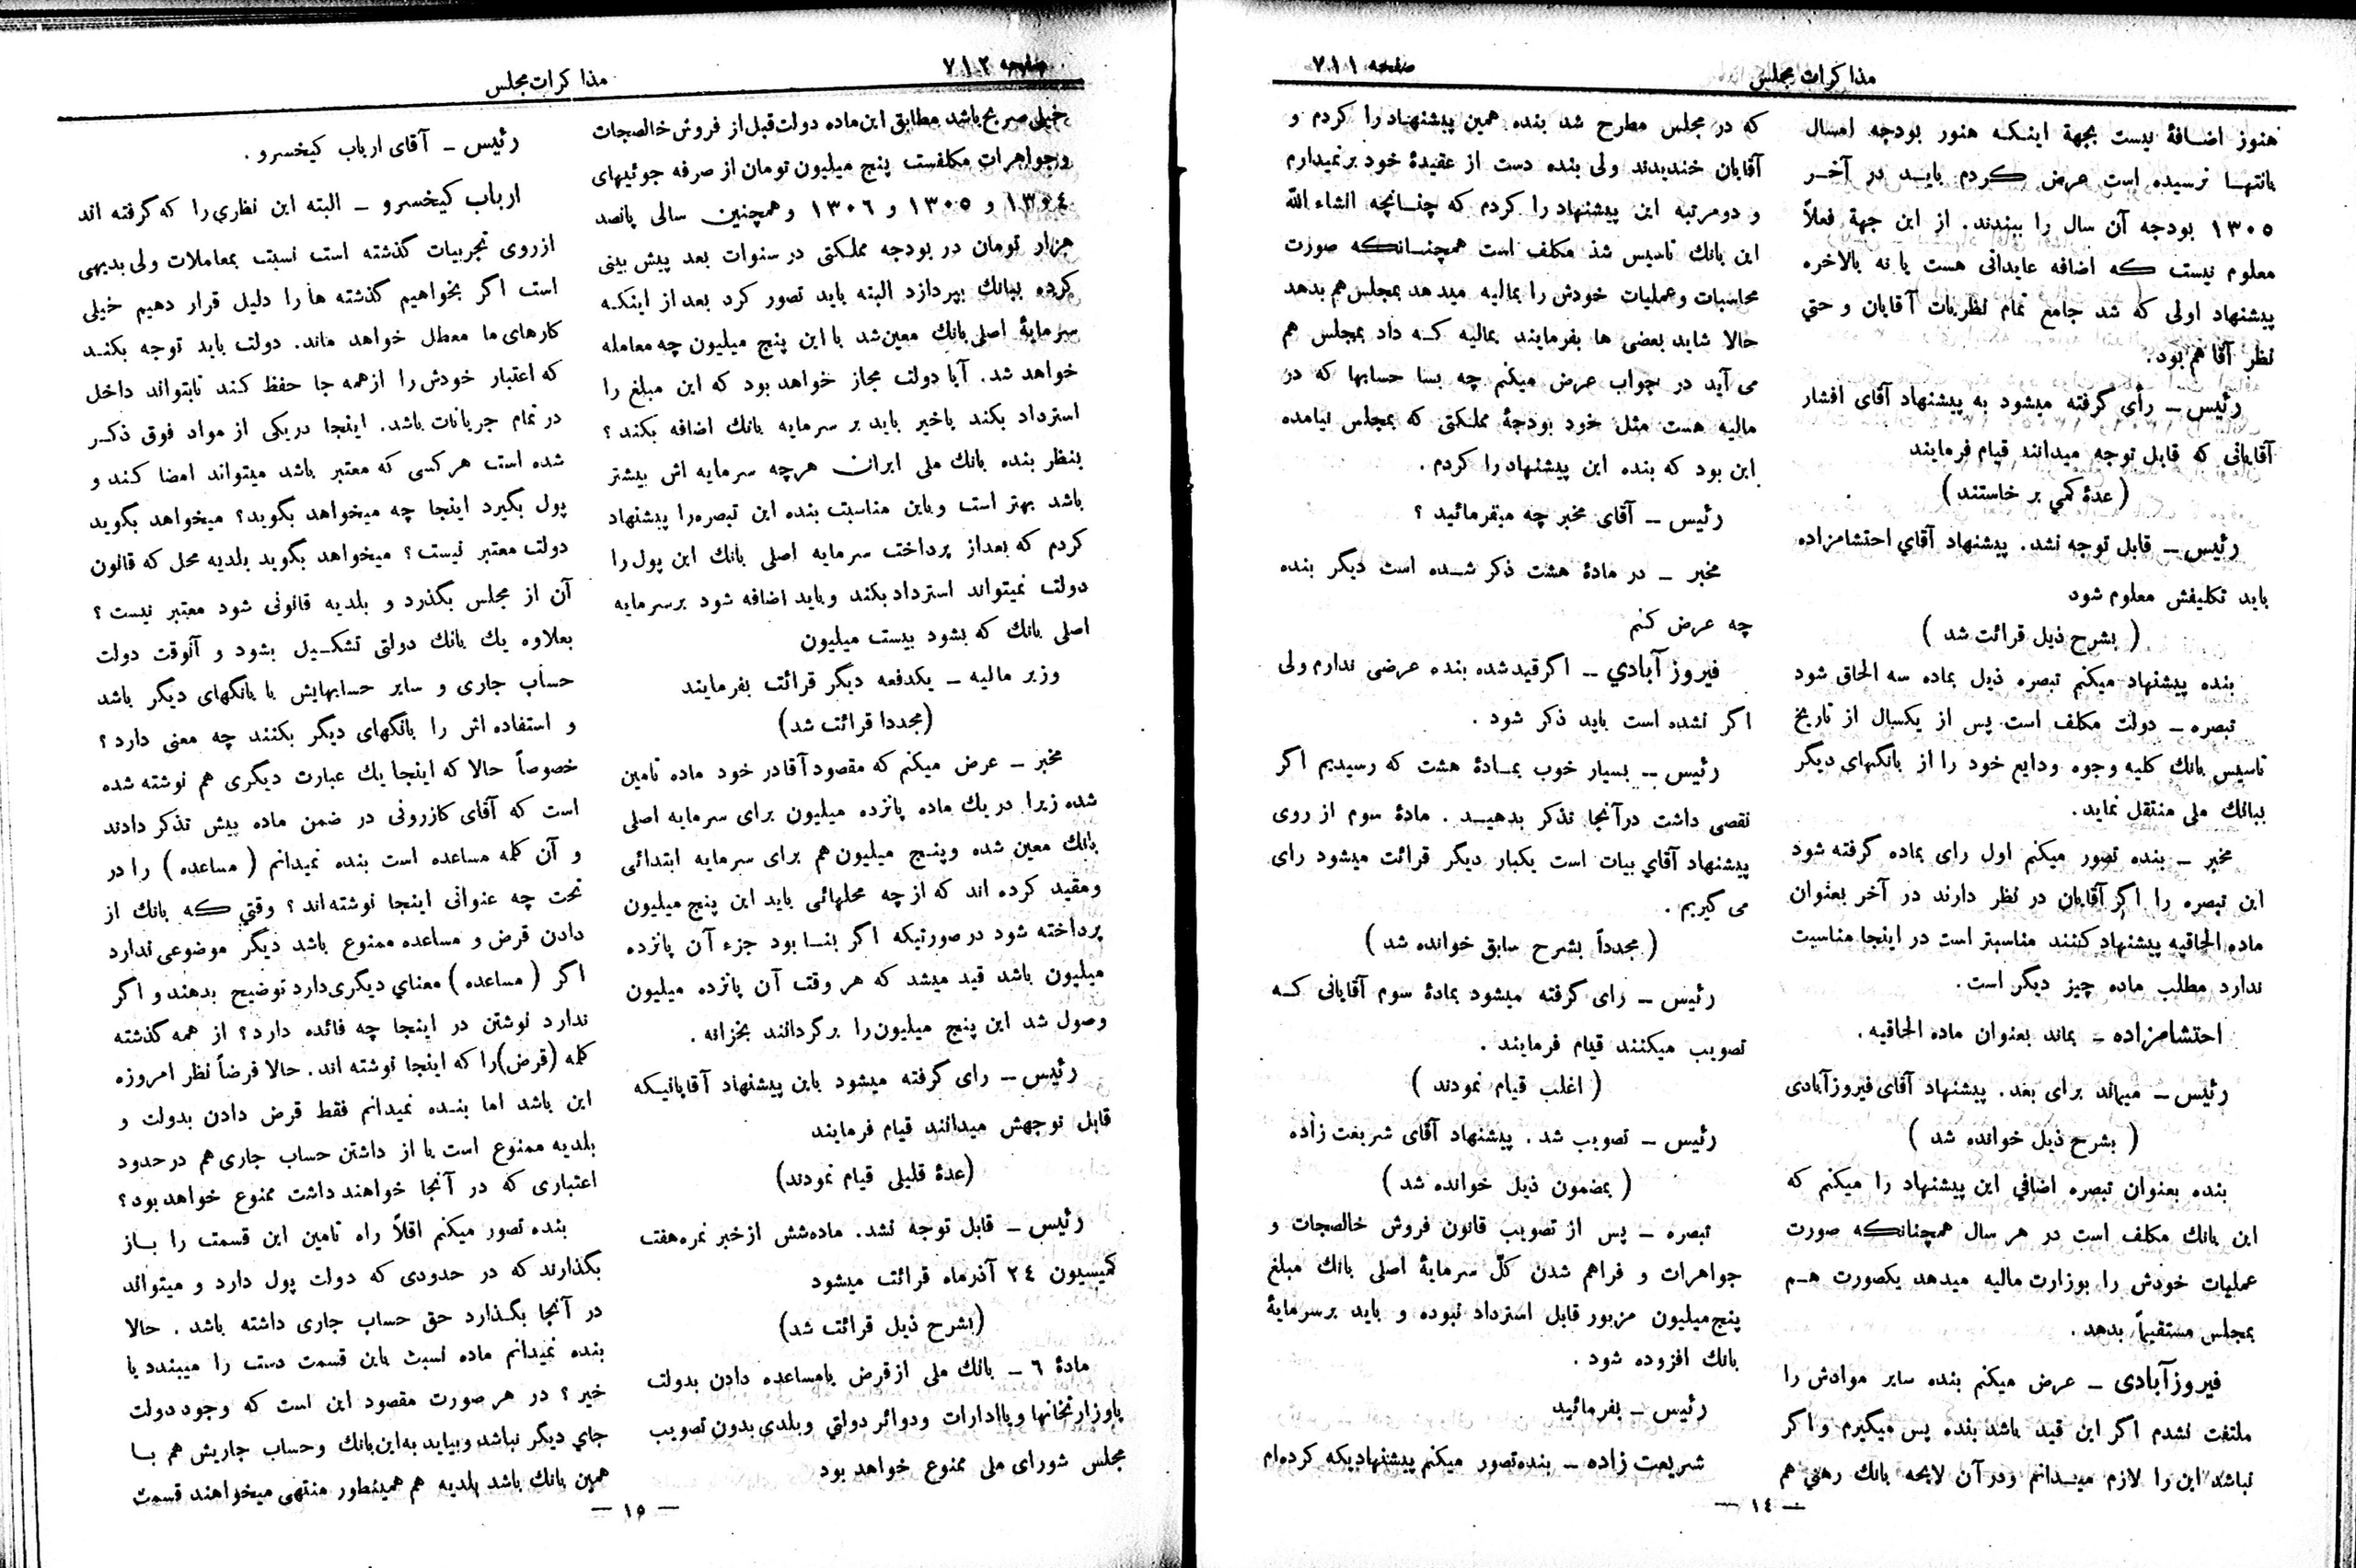 صفحه ۷۱۱
مذاکرات مجلس
هنوز اضافهٔ نیست بجهة اینکه هنور بودجه امسال
بانتها نرسیده است عرض کردم باید در آخر
۱۳۰۵ بودجه آن سال را ببندند. از این جهة فعلاً
معلوم نیست که اضافه عایدانی هست یا نه بالاخره
پیشنهاد اولی که شد جامع تمام نظریات آقایان و حتی
نظر آقا هم بود.
رئیس – رأی گرفته میشود به پیشنهاد آقای افشار
آقایانی که قابل توجه میدانند قیام فرمایند
( عدهٔ کمی بر خاستند )
رئیس – قابل توجه نشد. پیشنهاد آقای احتشامزاده
باید تکلیفش معلوم شود
( بشرح ذیل قرائت شد )
بنده پیشنهاد میکنم تبصره ذیل بماده سه الحاق شود
تبصره – دولت مکلف است پس از یکسال از تاریخ
تاسیس بانك کلیه وجوه ودایع خود را از بانگهای دیگر
ببانك ملی منتقل نماید.
مخبر – بنده تصور میکنم اول رای بماده گرفته شود
این تبصره را اگر آقایان در نظر دارند در آخر بعنوان
ماده الحاقیه پیشنهاد کنند مناسبتر است در اینجا مناسبت
ندارد مطلب ماده چیز دیگر است.
احتشامزاده – بماند بعنوان ماده الحاقیه.
رئیس – میماند برای بعد. پیشنهاد آقای فیروزآبادی
( بشرح ذیل خوانده شد )
بنده بعنوان تبصره اضافی این پیشنهاد را میکنم که
این بانك مکلف است در هر سال همچنانکه صورت
عملیات خودش را بوزارت مالیه میدهد یکصورت هم
بمجلس مستقیماً بدهد.
فیروزآبادی – عرض میکنم بنده سایر موادش را
ملتفت نشدم اگر این قید باشد بنده پس میگیرم و اگر
نباشد این را لازم میدانم و در آن لایحه بانك رهنی هم
که در مجلس مطرح شد بنده همین پیشنهاد را کردم و
آقایان خندیدند ولی بنده دست از عقیدهٔ خود برنمیدارم
و دومرتبه این پیشنهاد را کردم که چنانچه انشاء الله
این بانك تاسیس شد مکلف است همچنانکه صورت
محاسبات و عملیات خودش را بمالیه میدهد بمجلس هم بدهد
حالا شاید بعضی ها بفرمایند بمالیه که داد بمجلس هم
می آید در جواب عرض میکنم چه بسا حسابها که در
مالیه هست مثل خود بودجهٔ مملکتی که بمجلس نیامده
این بود که بنده این پیشنهاد را کردم.
رئیس – آقای مخبر چه میفرمائید ؟
مخبر – در مادهٔ هشت ذکر شده است دیگر بنده
چه عرض کنم
فیروز آبادی – اگر قید شده بنده عرضی ندارم ولی
اگر نشده است باید ذکر شود.
رئیس – بسیار خوب بمادهٔ هشت که رسیدیم اگر
نقصی داشت درآنجا تذکر بدهید. مادهٔ سوم از روی
پیشنهاد آقای بیات است یکبار دیگر قرائت میشود رای
می گیریم.
( مجدداً بشرح سابق خوانده شد )
رئیس – رای گرفته میشود بمادهٔ سوم آقایانی که
تصویب میکنند قیام فرمایند.
( اغلب قیام نمودند )
رئیس – تصویب شد. پیشنهاد آقای شریعت زاده
( بمضمون ذیل خوانده شد )
تبصره – پس از تصویب قانون فروش خالصجات و
جواهرات و فراهم شدن کلّ سرمایهٔ اصلی بانك مبلغ
پنج میلیون مزبور قابل استرداد نبوده و باید برسرمایهٔ
بانك افزوده شود.
رئیس – بفرمائید
شریعت زاده – بنده تصور میکنم پیشنهادیکه کرده ام
— ۱٤ —
صفحه ۷۱۲
مذاکرات مجلس
خیلی صریح باشد مطابق این ماده دولت قبل از فروش خالصجات
و جواهرات مکلفست پنج میلیون تومان از صرفه جوئیهای
۱۳۰٤ و ۱۳۰۵ و ۱۳۰۶ و همچنین سالی پانصد
هزار تومان در بودجه مملکتی در سنوات بعد پیش بینی
کرده ببانك بپردازد البته باید تصور کرد بعد از اینکه
سرمایهٔ اصلی بانك معین شد با این پنج میلیون چه معامله
خواهد شد. آیا دولت مجاز خواهد بود که این مبلغ را
استرداد بکند یاخیر باید بر سرمایه بانك اضافه بکند ؟
بنظر بنده بانك ملی ایران هرچه سرمایه اش بیشتر
باشد بهتر است و باین مناسبت بنده این تبصره را پیشنهاد
کردم که بعداز پرداخت سرمایه اصلی بانك این پول را
دولت نمیتواند استرداد بکند و باید اضافه شود برسرمایه
اصلی بانك که بشود بیست میلیون
وزیر مالیه – یکدفعه دیگر قرائت بفرمایند
(مجددا قرائت شد)
مخبر – عرض میکنم که مقصود آقا در خود ماده تامین
شده زیرا در یك ماده پانزده میلیون برای سرمایه اصلی
بانك معین شده و پنج میلیون هم برای سرمایه ابتدائی
و مقید کرده اند که از چه محلهائی باید این پنج میلیون
پرداخته شود در صورتیکه اگر بنا بود جزء آن پانزده
میلیون باشد قید میشد که هر وقت آن پانزده میلیون
وصول شد این پنج میلیون را برگردانند بخزانه.
رئیس – رای گرفته میشود باین پیشنهاد آقایانیکه
قابل توجهش میدانند قیام فرمایند
(عدهٔ قلیلی قیام نمودند)
رئیس – قابل توجه نشد. ماده شش از خبر نمره هفت
کمیسیون ۲٤ آذرماه قرائت میشود
(بشرح ذیل قرائت شد)
مادهٔ ۶ – بانك ملی از قرض یا مساعده دادن بدولت
یا وزارتخانها و یا ادارات و دوائر دولتی و بلدی بدون تصویب
مجلس شورای ملی ممنوع خواهد بود
رئیس – آقای ارباب کیخسرو.
ارباب کیخسرو – البته این نظری را که گرفته اند
ازروی تجربیات گذشته است نسبت بمعاملات ولی بدیهی
است اگر بخواهیم گذشته ها را دلیل قرار دهیم خیلی
کارهای ما معطل خواهد ماند. دولت باید توجه بکند
که اعتبار خودش را ازهمه جا حفظ کند تابتواند داخل
در تمام جریانات باشد. اینجا دریکی از مواد فوق ذکر
شده است هر کسی که معتبر باشد میتواند امضا کند و
پول بگیرد اینجا چه میخواهد بگوید؟ میخواهد بگوید
دولت معتبر نیست ؟ میخواهد بگوید بلدیه محل که قانون
آن از مجلس بگذرد و بلدیه قانونی شود معتبر نیست ؟
بعلاوه یك بانك دولتی تشکیل بشود و آنوقت دولت
حساب جاری و سایر حسابهایش با بانگهای دیگر باشد
و استفاده اش را بانگهای دیگر بکنند چه معنی دارد ؟
خصوصاً حالا که اینجا یك عبارت دیگری هم نوشته شده
است که آقای کازرونی در ضمن ماده پیش تذکر دادند
و آن کلمه مساعده است بنده نمیدانم ( مساعده ) را در
تحت چه عنوانی اینجا نوشته اند ؟ وقتی که بانك از
دادن قرض و مساعده ممنوع باشد دیگر موضوعی ندارد
اگر ( مساعده ) معنای دیگری دارد توضیح بدهند و اگر
ندارد نوشتن در اینجا چه فائده دارد؟ از همه گذشته
کلمه (قرض) را که اینجا نوشته اند. حالا فرضاً نظر امروزه
این باشد اما بنده نمیدانم فقط قرض دادن بدولت و
بلدیه ممنوع است یا از داشتن حساب جاری هم درحدود
اعتباری که در آنجا خواهند داشت ممنوع خواهد بود؟
بنده تصور میکنم اقلاً راه تامین این قسمت را باز
بگذارند که در حدودی که دولت پول دارد و میتواند
در آنجا بگذارد حق حساب جاری داشته باشد. حالا
بنده نمیدانم ماده نسبت باین قسمت دست را میبندد یا
خیر ؟ در هر صورت مقصود این است که وجود دولت
جای دیگر نباشد و بیاید به این بانك وحساب جاریش هم با
همین بانك باشد بلدیه هم همینطور منتهی میخواهند قسمت
— ۱۵ —